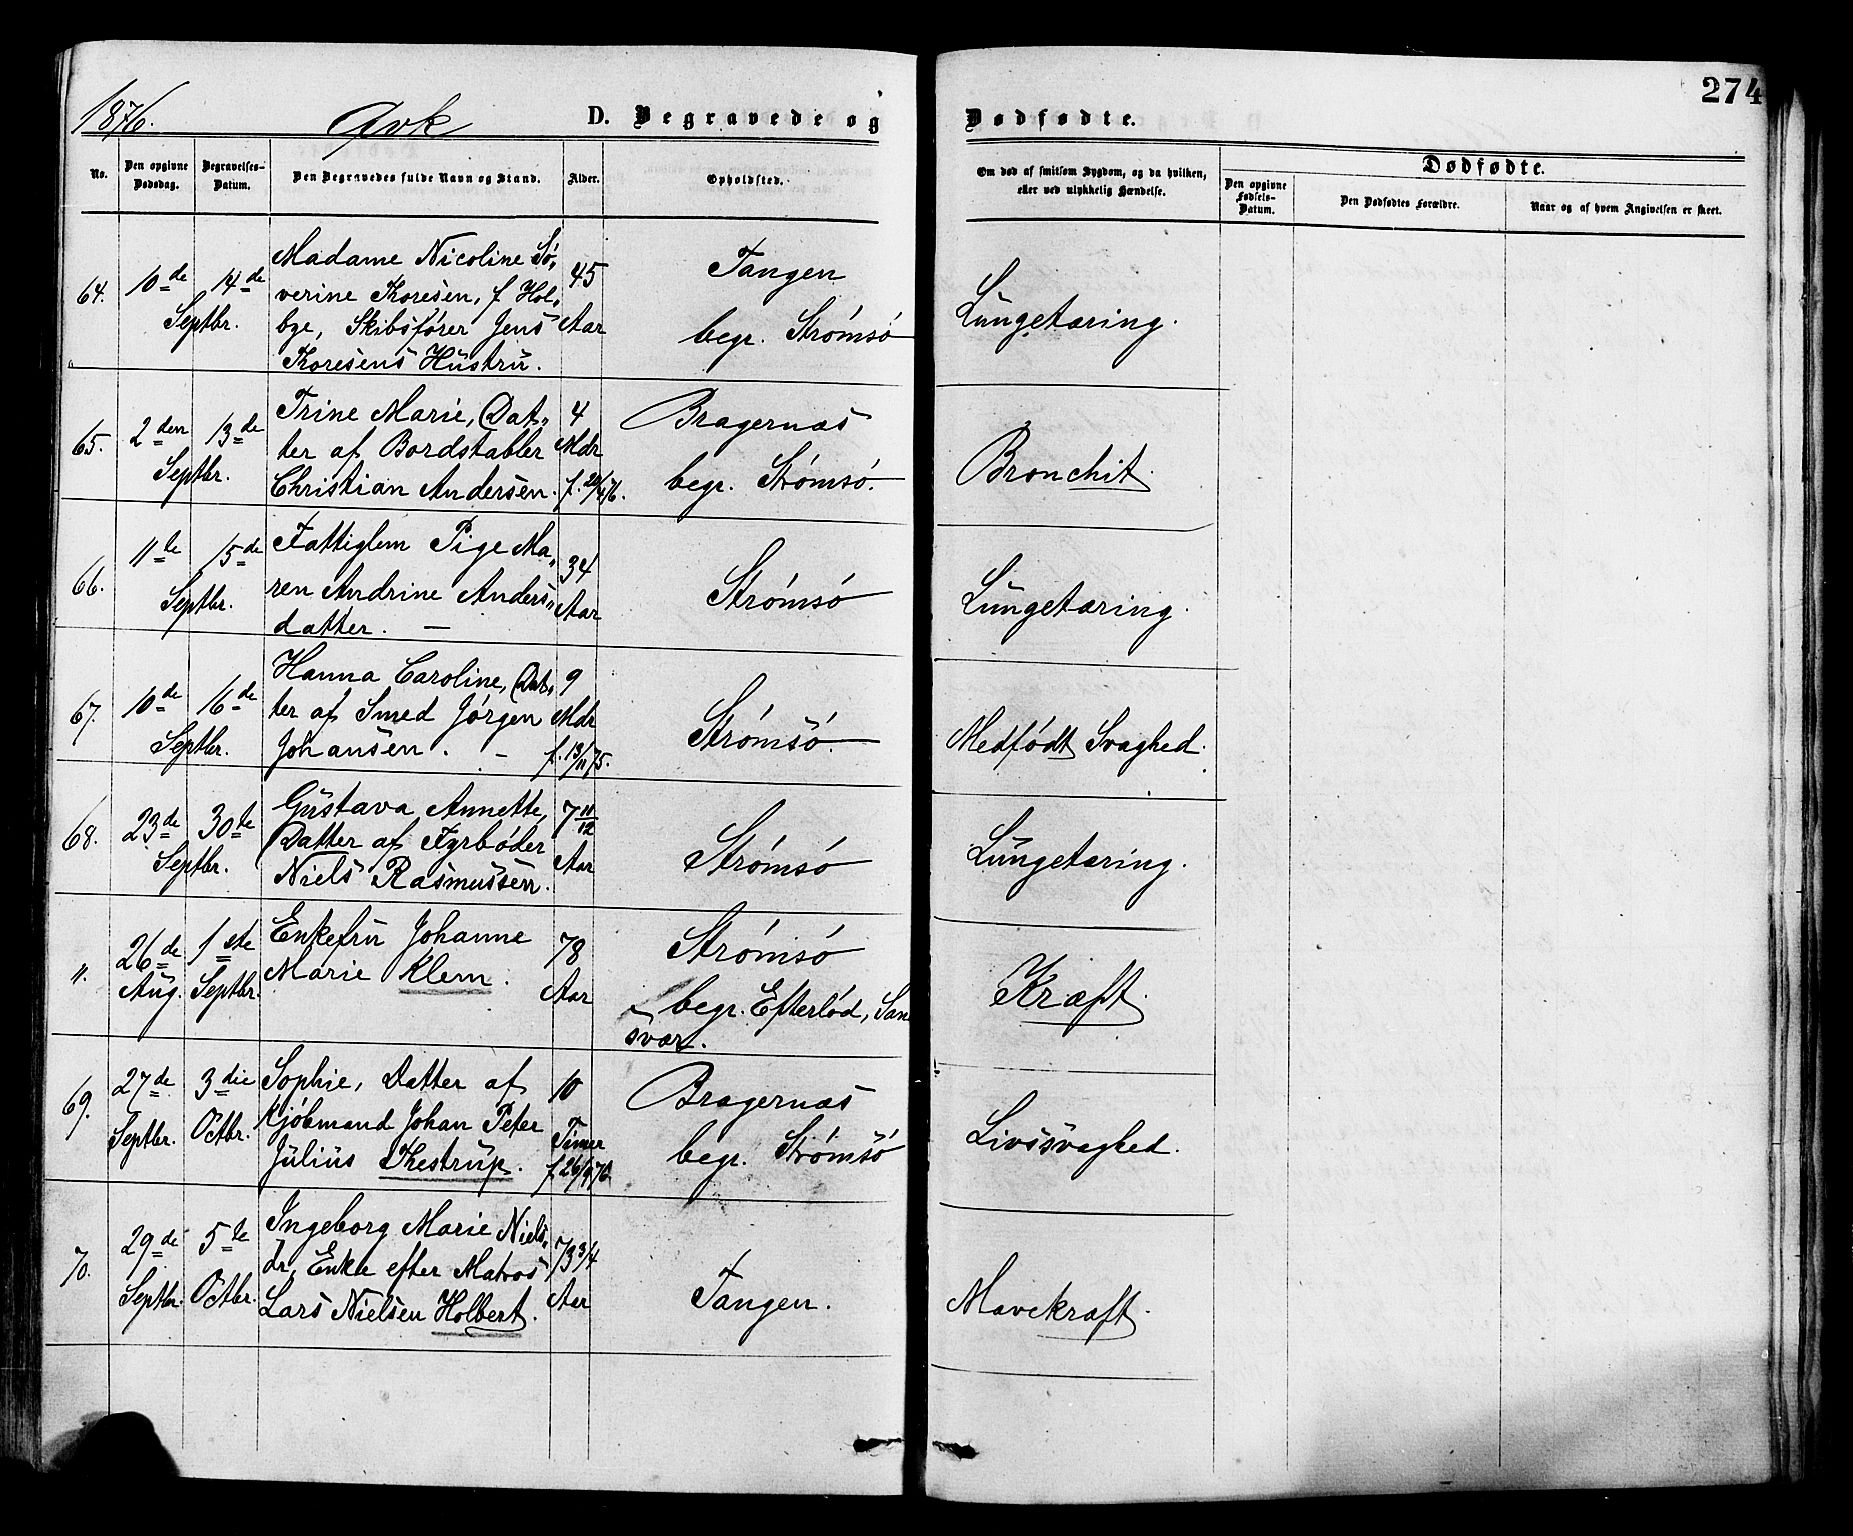 274
1876. Qvk D. Begravede og Dødfødte.
No. Den opgivne Dødsdag. Begravelses-Datum. Den Begravedes fulde Navn og Stand. Alder. Opholdssted. Om død af smitsom Sygdom, og da hvilken, eller ved ulykkelig Hændelse. Dødfødte.
Den opgivne Fødsels-Datum. Den Dødfødtes Forældre. Naar og af hvem Angivelsen er skeet.
64. 10de 14de Septbr.
Madame Nicoline Sø„
verine Koresen, f Hol„
bye, Skibsfører Jens
Koresens Hustru.
45 Aar
Tangen
begr. Strømsø
Lungetæring.
65. 2den 13de Septbr.
Trine Marie, Dat„
ter af Bordstabler
Christian Andersen.
4 Mdr
Bragernæs
begr. Strømsø.
Bronchit.
66. 11te 15de Septbr.
Fattiglem Pige Ma„
ren Andrine Anders„
datter. —
34 Aar
Strømsø
Lungetæring.
67. 10de 16de Septbr.
Hanna Caroline, Dat„
ter af Smed Jørgen
Johansen. —
9 Mdr
f. 13/11 75.
Strømsø.
Medfødt Svaghed.
68. 23de 30te Septbr.
Gustava Annette,
Datter af Fyrbøder
Niels Rasmussen.
7 11/12 Aar
Strømsø
Lungetæring.
„. 26de Aug. 1ste Septbr.
Enkefru Johanne
Marie Klem.
78 Aar
Strømsø
begr. Efterlød, San
svær.
Kræft.
69. 27de Septbr. 3die Octbr.
Sophie, Datter af
Kjøbmand Johan Peter
Julius Kestrup.
10 Timer
f. 26/9 76.
Bragernæs
begr. Strømsø
Livssvaghed.
70. 29de Septbr. 5te Octbr.
Ingeborg Marie Niels„
dr, Enke efter Matros
Lars Nielsen Holbert.
73 3/4 Aar
Tangen.
Mavekræft.